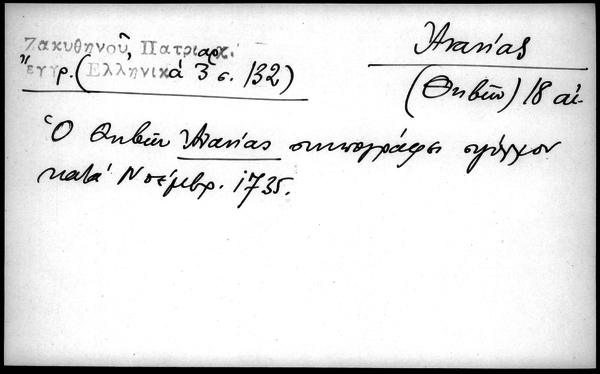 Ζακυθηνοῦ, Πατριαρχ.
ἔγγρ. (Ἑλληνικά 3 σ. 132)
Ἀνανίας
(Θηβῶν) 18 αἰ.
Ὁ Θηβῶν Ἀνανίας συνυπογράφει
κατά Νοέμβρ. 1735.